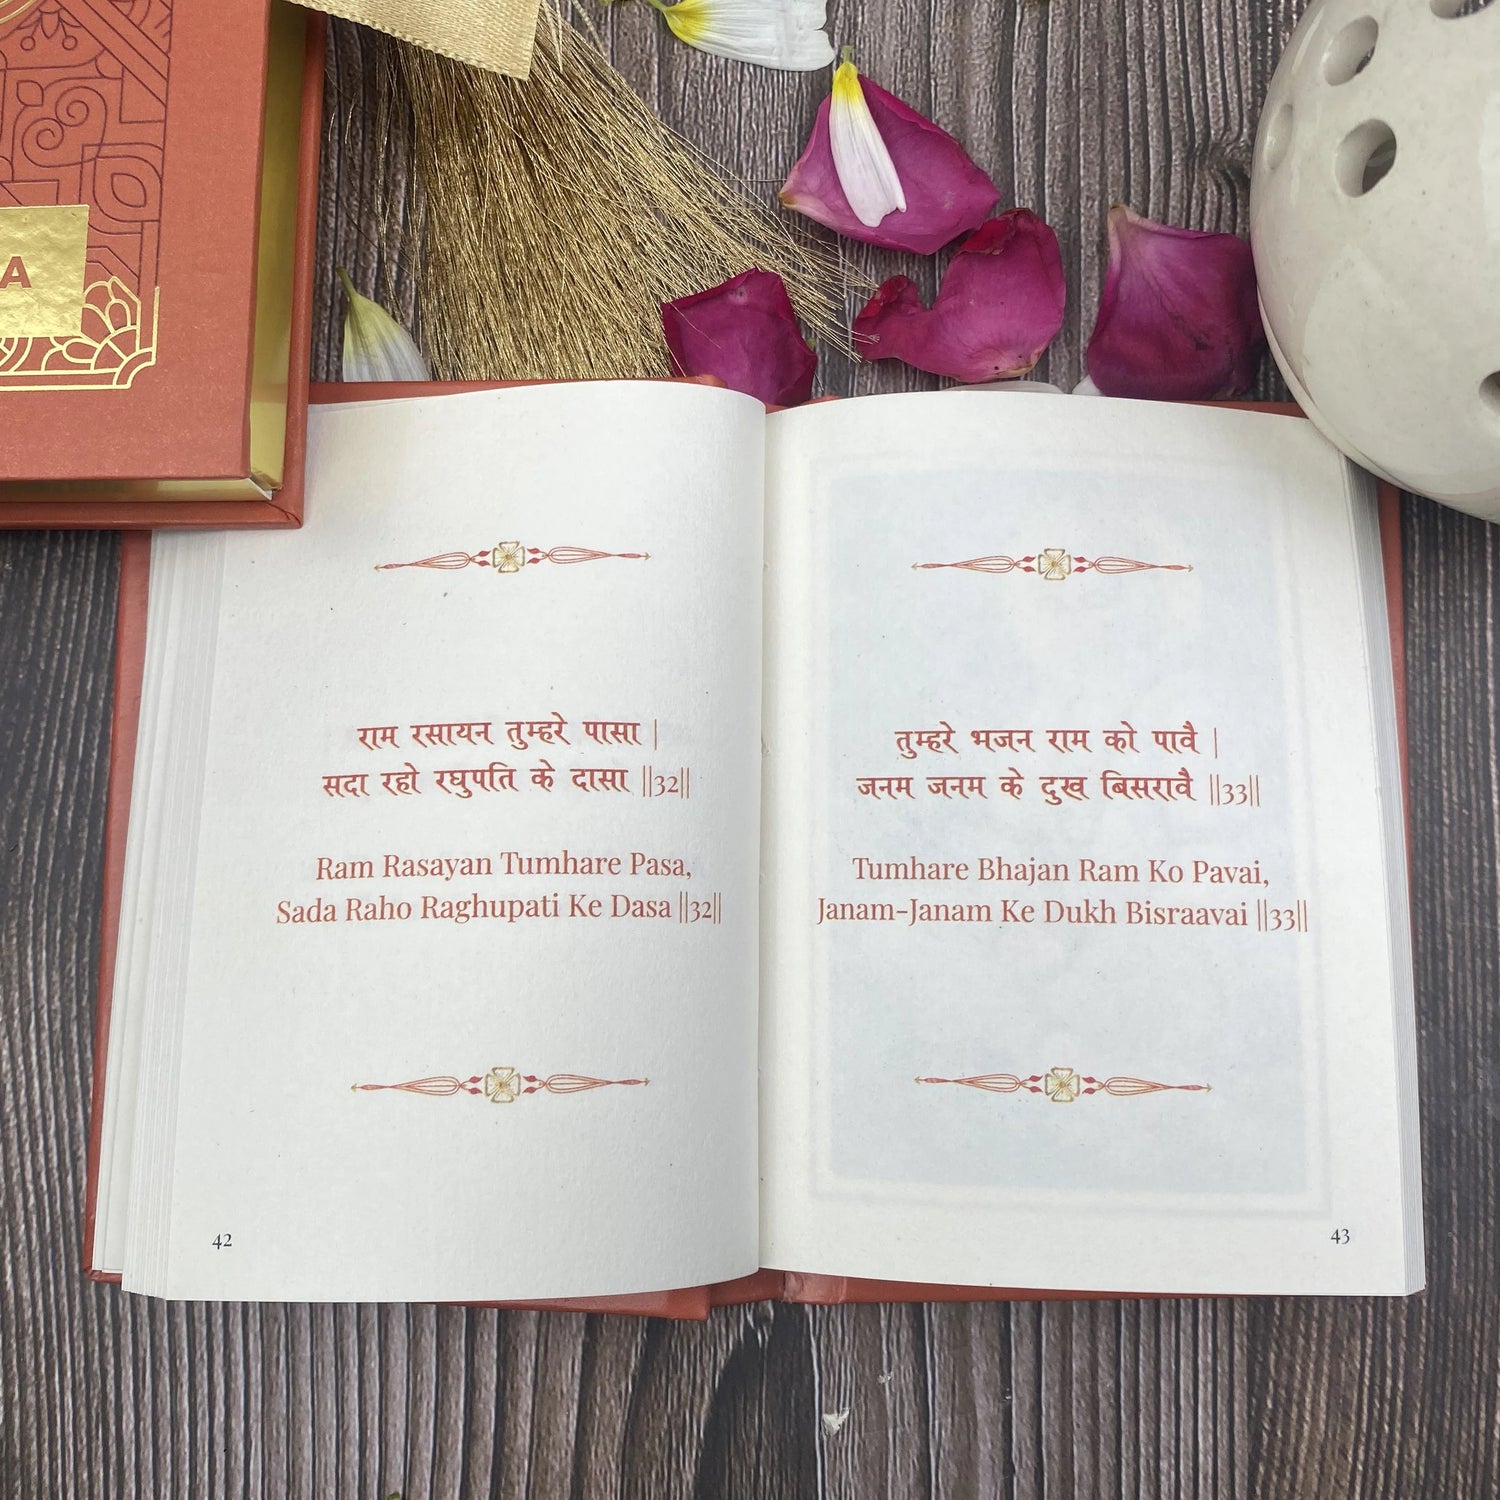 A
राम रसायन तुम्हरे पासा |
सदा रहो रघुपति के दासा ||32||
Ram Rasayan Tumhare Pasa,
Sada Raho Raghupati Ke Dasa ||32||
42
तुम्हरे भजन राम को पावै |
जनम जनम के दुख बिसरावै ||33||
Tumhare Bhajan Ram Ko Pavai,
Janam-Janam Ke Dukh Bisraavai ||33||
43